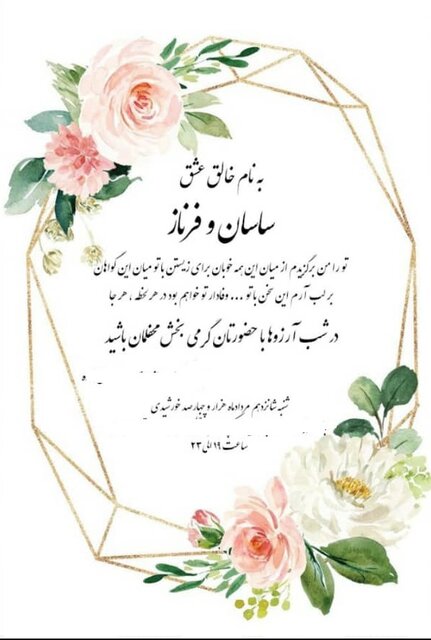 به نام خالق عشق
ساسان و فرناز
تو را من برگزیدم از میان این همه خوبان برای زیستن با تو میان این گواهان
بر لب آرم این سخن با تو ... وفادار تو خواهم بود در هر لحظه ، هر جا
در شب آرزوها با حضورتان گرمی بخش محفلمان باشید
شنبه شانزدهم مردادماه هزار و چهارصد خورشیدی
ساعت ۱۹ الی ۲۳